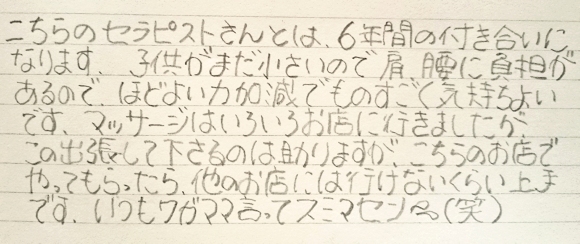 こちらのセラピストさんとは、6年間の付き合いに
なります、子供がまだ小さいので肩、腰に負担が
あるので、ほどよい力加減でものすごく気持ちよい
です、マッサージはいろいろお店に行きましたが、
この出張して下さるのは助かりますが、こちらのお店で
やってもらったら、他のお店には行けないくらい上手
です、いつもワガママ言ってスミマセン(笑)